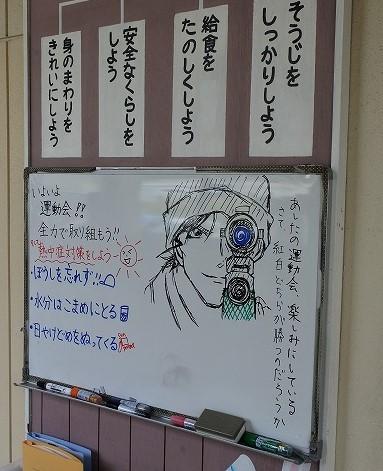 そうじを
しっかりしよう
給食を
たのしくしよう
安全なくらしを
しよう
身のまわりを
きれいにしよう
あしたの運動会、楽しみにしている
さて、紅白どちらが勝つのだろうか
いよいよ
運動会!!
全力で取り組もう!!
熱中症対策をしよう
・ぼうしを忘れず!!
・水分はこまめにとる
・日やけどめをぬってくる